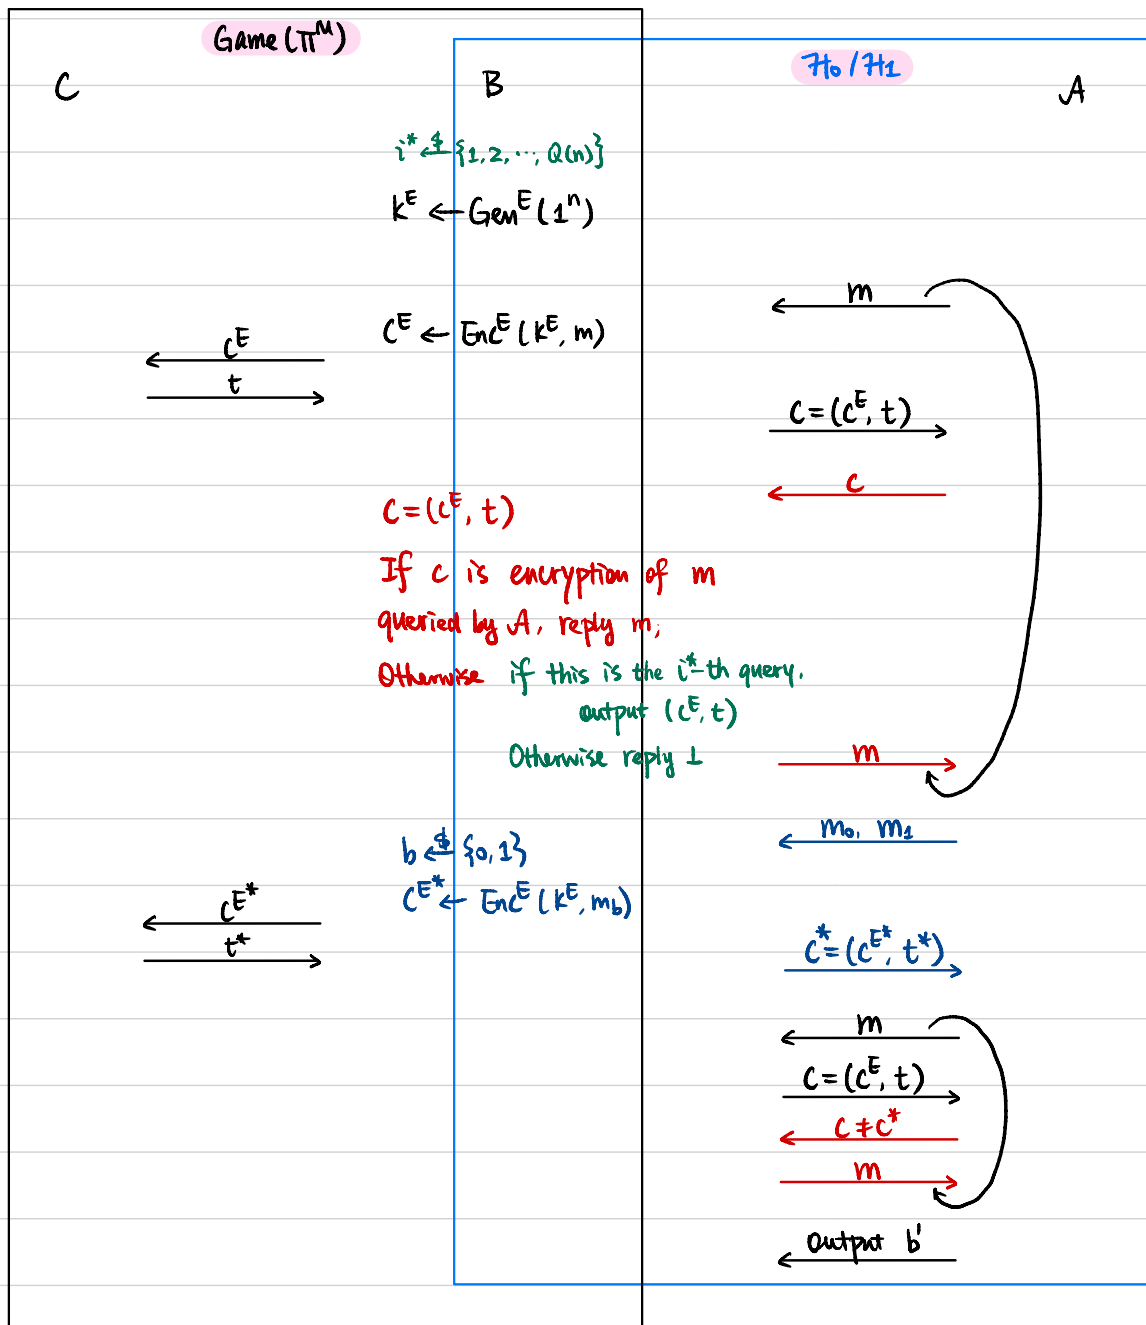 Game(Π^M)
H₀/H₁
C
B
A
i* ←$ {1,2,⋯,Q(n)}
k^E ← Gen^E(1^n)
m
C^E ← Enc^E(k^E, m)
C^E
t
C=(C^E, t)
C
C=(C^E, t)
If c is encryption of m
queried by A, reply m;
Otherwise if this is the i*-th query,
output (C^E, t)
Otherwise reply ⊥
m
m₀, m₁
b ←$ {0,1}
C^E* ← Enc^E(k^E, m_b)
C^E*
t*
C*=(C^E*, t*)
m
C=(C^E, t)
C≠C*
m
output b'